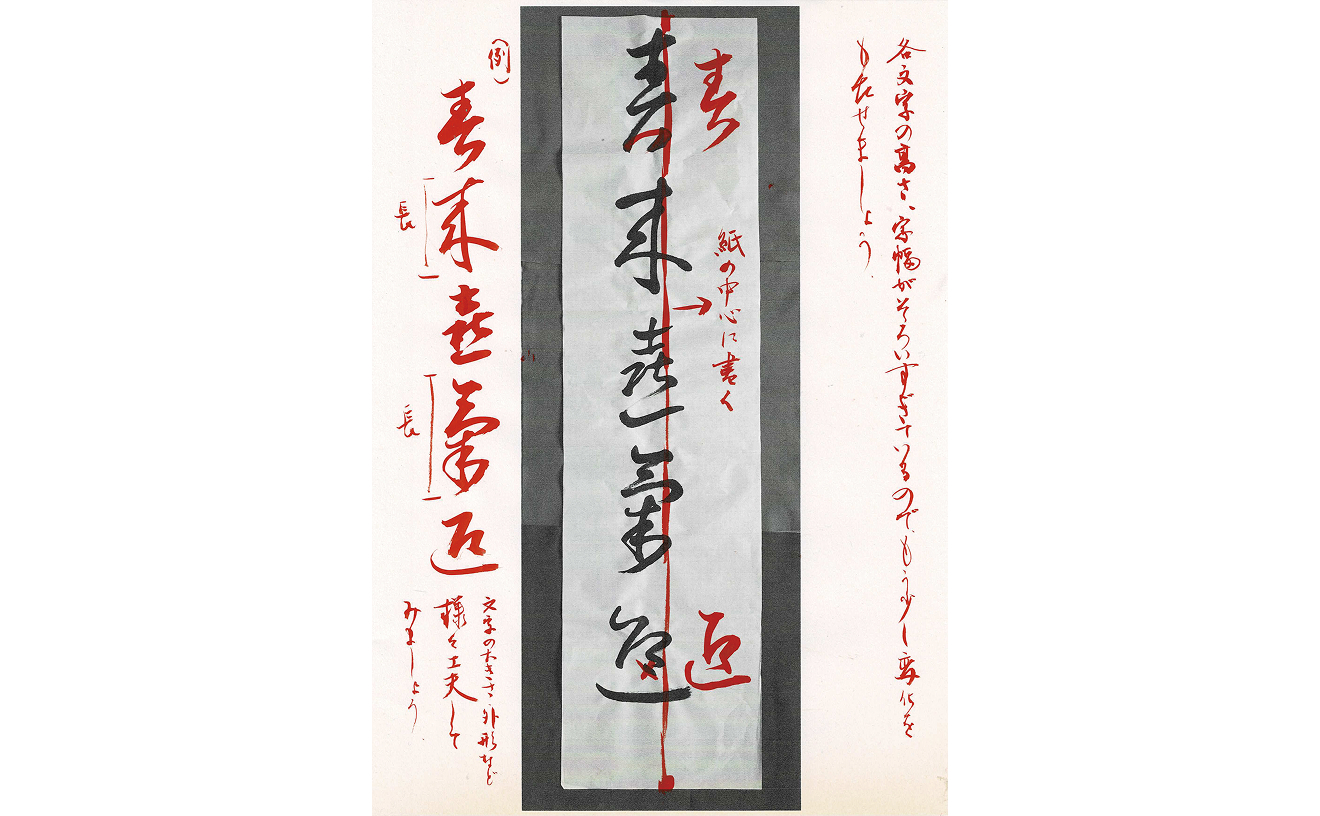 各文字の高さ、字幅がそろいすぎているので、もう少し変化を
もたせましょう
春
→紙の中心に書く
迎
春来喜氣迎
（例）
春来喜氣迎
長
長
文字の大きさ、外形など
様々工夫して
みましょう